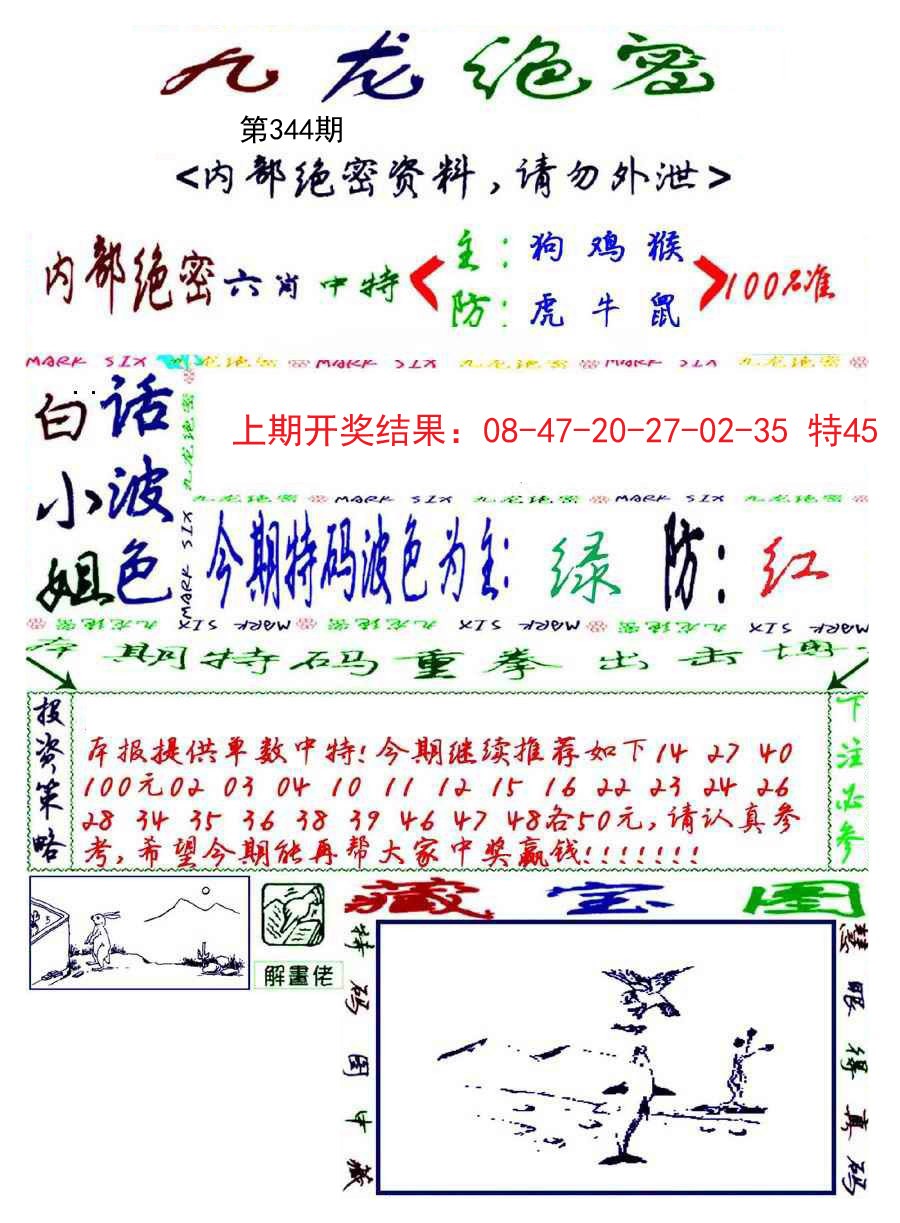 九龙绝密
第344期
<内部绝密资料,请勿外泄>
内部绝密六肖中特
主:狗鸡猴
防:虎牛鼠
100%准
MARK SIX 九龙绝密 MARK SIX 九龙绝密 MARK SIX 九龙绝密
白话
小波
姐色
九龙绝密 MARK SIX
上期开奖结果：08-47-20-27-02-35 特45
九龙绝密 MARK SIX 九龙绝密 MARK SIX 九龙绝密
今期特码波色为主:绿 防:红
九龙绝密 MARK SIX 九龙绝密 MARK SIX 九龙绝密 MARK SIX
本期特码重拳出击
投资策略
本报提供单数中特!今期继续推荐如下14 27 40
100元02 03 04 10 11 12 15 16 22 23 24 26
28 34 35 36 38 39 46 47 48各50元,请认真参
考,希望今期能再帮大家中奖赢钱!!!!!!!
下注必参
解畫佬
藏宝图
特码图中藏
慧眼得真码